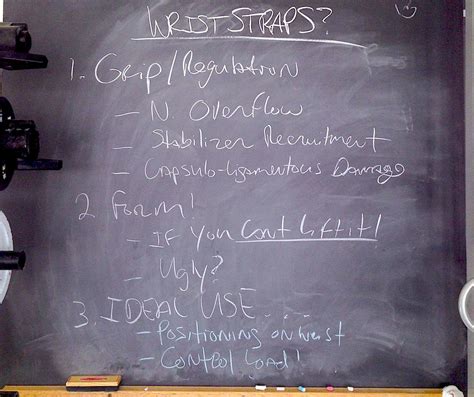 WRIST STRAPS?
1. Grip/Regulation
- N. Overflow
- Stabilizer Recruitment
- Capsulo-Ligamentous Damage
2 Form!
- IF You Cant lift it!
- Ugly?
3. IDEAL USE....
- Positioning on wrist
- Control Load!